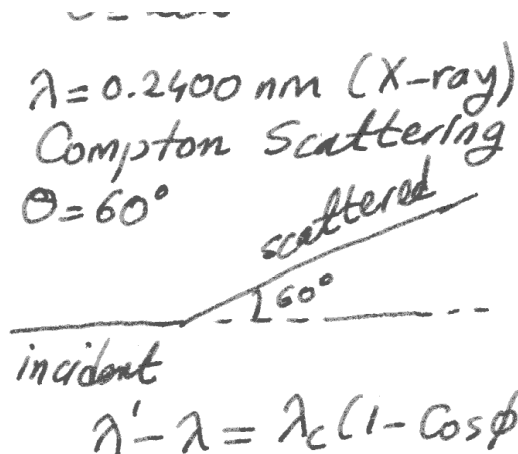 λ = 0.2400 nm (X-ray)
Compton Scattering
θ = 60°
scattered
60°
incident
λ' - λ = λc (1 - Cosφ